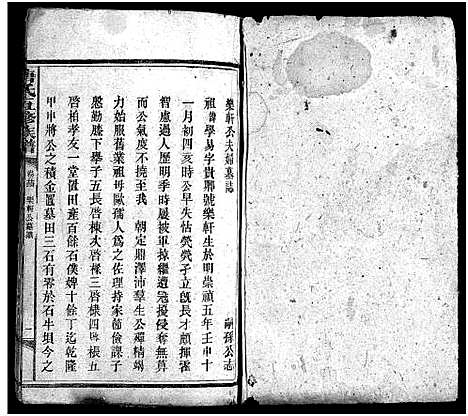 樂軒公夫婦墓誌
嗣孫公志
祖諱學易字貴聊號樂軒生於明崇禎五年壬申十
一月初四亥時公早失怙煢煢孑立旣長才頗揮霍
智慮過人明季時屢被軍掠繼遭寇擾侵奪無算
而公氣度不撓至我　朝定鼎澤沛羣生公殫精竭
力始服舊業祖母歐孺人爲之佐理持家節儉課子
慇勤膝下擧子五長啓棟次啓樑三啓樑四 楨五
啓柏孝友一堂置田產百餘石僕婢十餘丁迄乾隆
甲申將公之積金置墓田三石有零於石牛垻今之
氏五修族譜
樂軒公墓誌
一